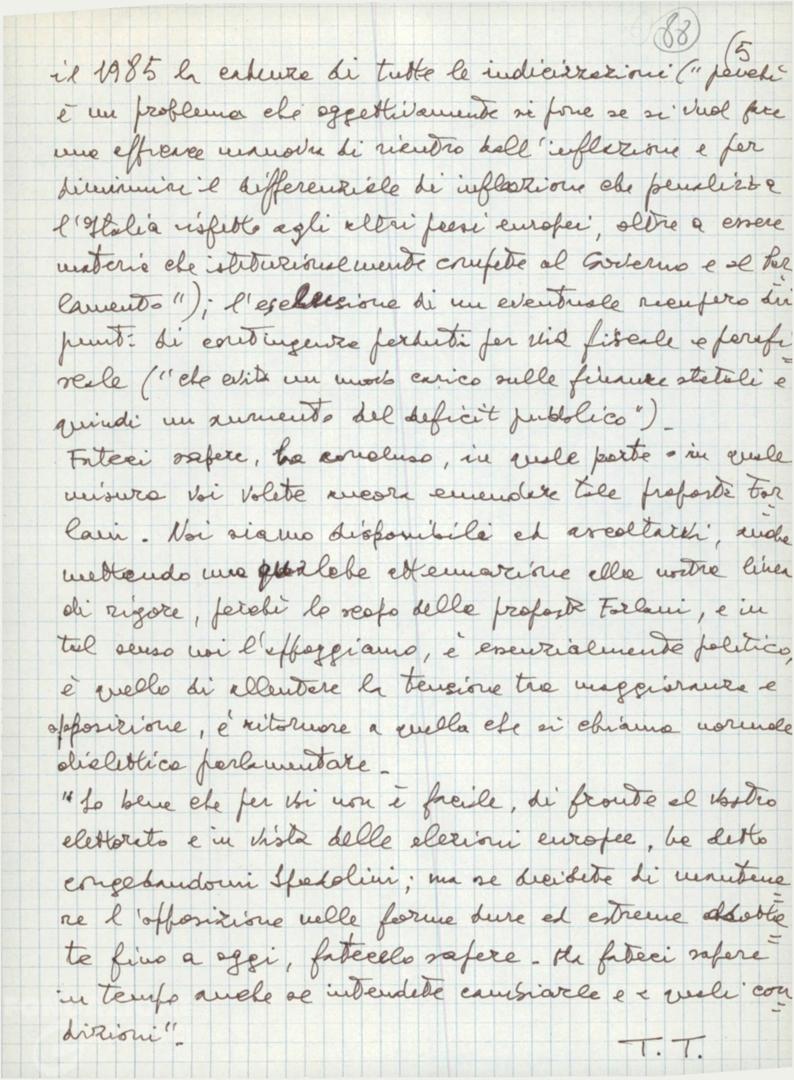 88
(5
il 1985 la cadenza di tutte le indicizzazioni ("perché
è un problema che oggettivamente si pone se si vuol fare
una efficace manovra di rientro dall'inflazione e per
diminuire il differenziale di inflazione che penalizza
l'Italia rispetto agli altri paesi europei, oltre a essere
materia che istituzionalmente compete al Governo e al Par
lamento"); l'esclusione di un eventuale recupero dei
punti di contingenza perduti per via fiscale e parafi
scale ("che evita un nuovo carico sulle finanze statali e
quindi un aumento del deficit pubblico").
Fateci sapere, ha concluso, in quale parte o in quale
misura voi volete ancora emendare tale proposta For
lani. Noi siamo disponibili ad ascoltarvi, anche
mettendo una qualche attenuazione alla nostra linea
di rigore, perché lo scopo della proposta Forlani, e in
tal senso noi l'appoggiamo, è essenzialmente politico,
è quello di allentare la tensione tra maggioranza e
opposizione, è ritornare a quella che si chiama normale
dialettica parlamentare.
"So bene che per voi non è facile, di fronte al vostro
elettorato e in vista delle elezioni europee, ha detto
congedandomi Spadolini; ma se decidete di mantene
re l'opposizione nelle forme dure ed estreme adotta
te fino a oggi, fatecelo sapere. Ma fateci sapere
in tempo anche se intendete cambiarle e a quali con
dizioni".
T. T.